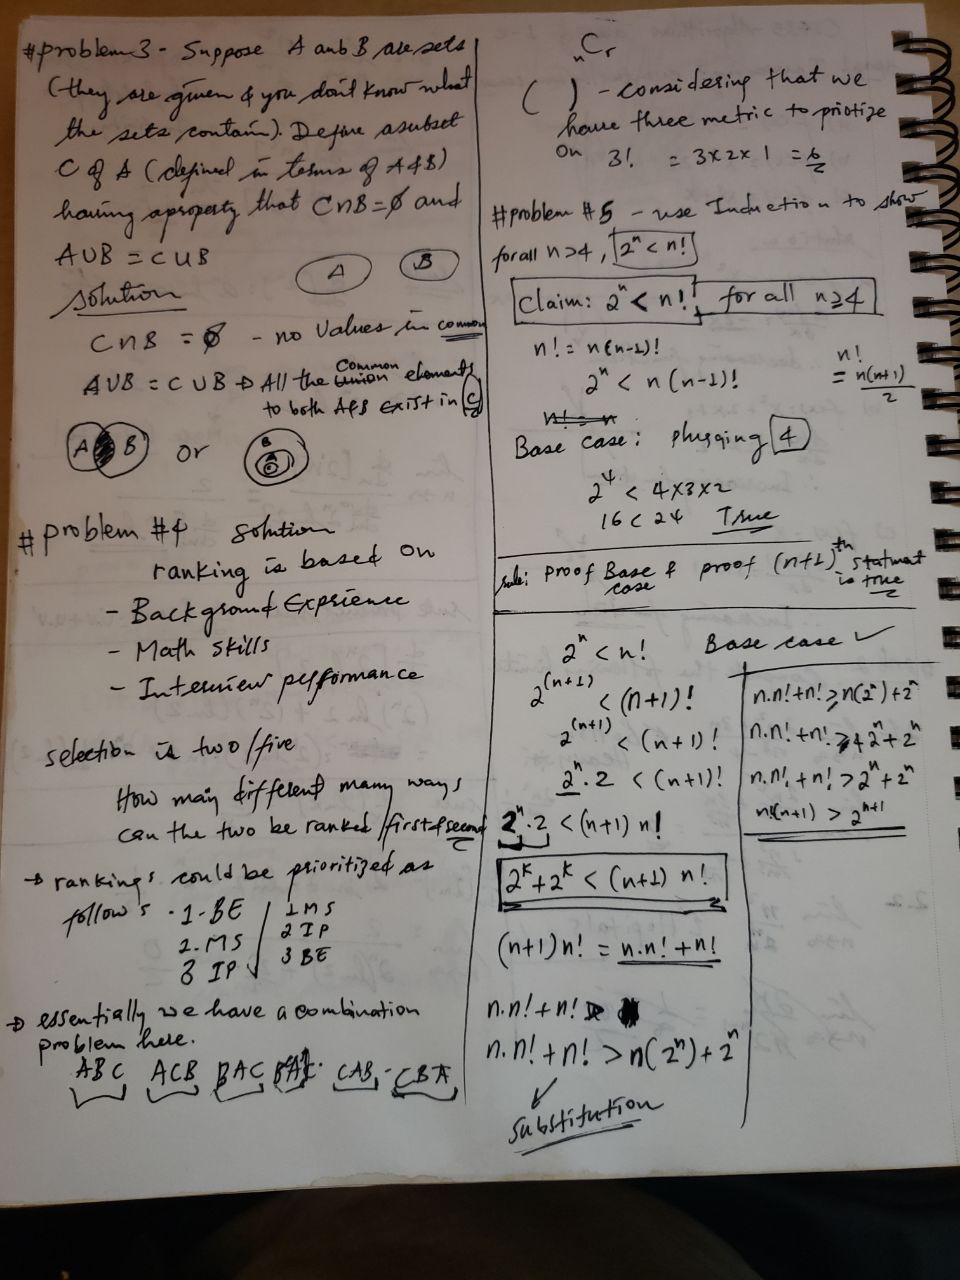 #problem 3 - Suppose A and B are sets
(they are given & you don't know what
the sets contain). Define a subset
C of A (defined in terms of A & B)
having a property that C∩B=∅ and
A∪B = C∪B
A B
solution
C∩B = ∅ - no values in common
A∪B = C∪B → All the common elements
to both A & B exist in C
A B or B
#problem #4 solution
ranking is based on
- Background Exprience
- Math skills
- Interview performance
selection is two/five
How many different many ways
can the two be ranked/first & second
→ ranking's could be prioritized as
follow's · 1-BE / 1 MS
2. MS 2 IP
3 IP 3 BE
→ essentially we have a combination
problem here.
ABC ACB BAC CAB - CBA
nCr
( ) - considering that we
have three metric to priotize
on 3! = 3x2x1 = 6
#problem #5 - use Induction to show
for all n>4, 2^n < n!
Claim: 2^n < n! for all n≥4
n! = n(n-1)!
2^n < n(n-1)!
n!
= n(n+1)/2
n! = n
Base case: plugging 4
2^4 < 4x3x2
16 < 24 True
rule: proof Base case & proof (n+1)th statmat is true
2^n < n! Base case ✓
2^(n+1) < (n+1)!
2^(n+1) < (n+1)!
2^n·2 < (n+1)!
2^n·2 < (n+1) n!
2^k+2^k < (n+1) n!
(n+1)n! = n.n!+n!
n.n!+n! >
n.n!+n! > n(2^n)+2^n
substitution
n.n!+n! > n(2^n)+2^n
n.n!+n! > 4 2^n+2^n
n.n!+n! > 2^n+2^n
n!(n+1) > 2^(n+1)